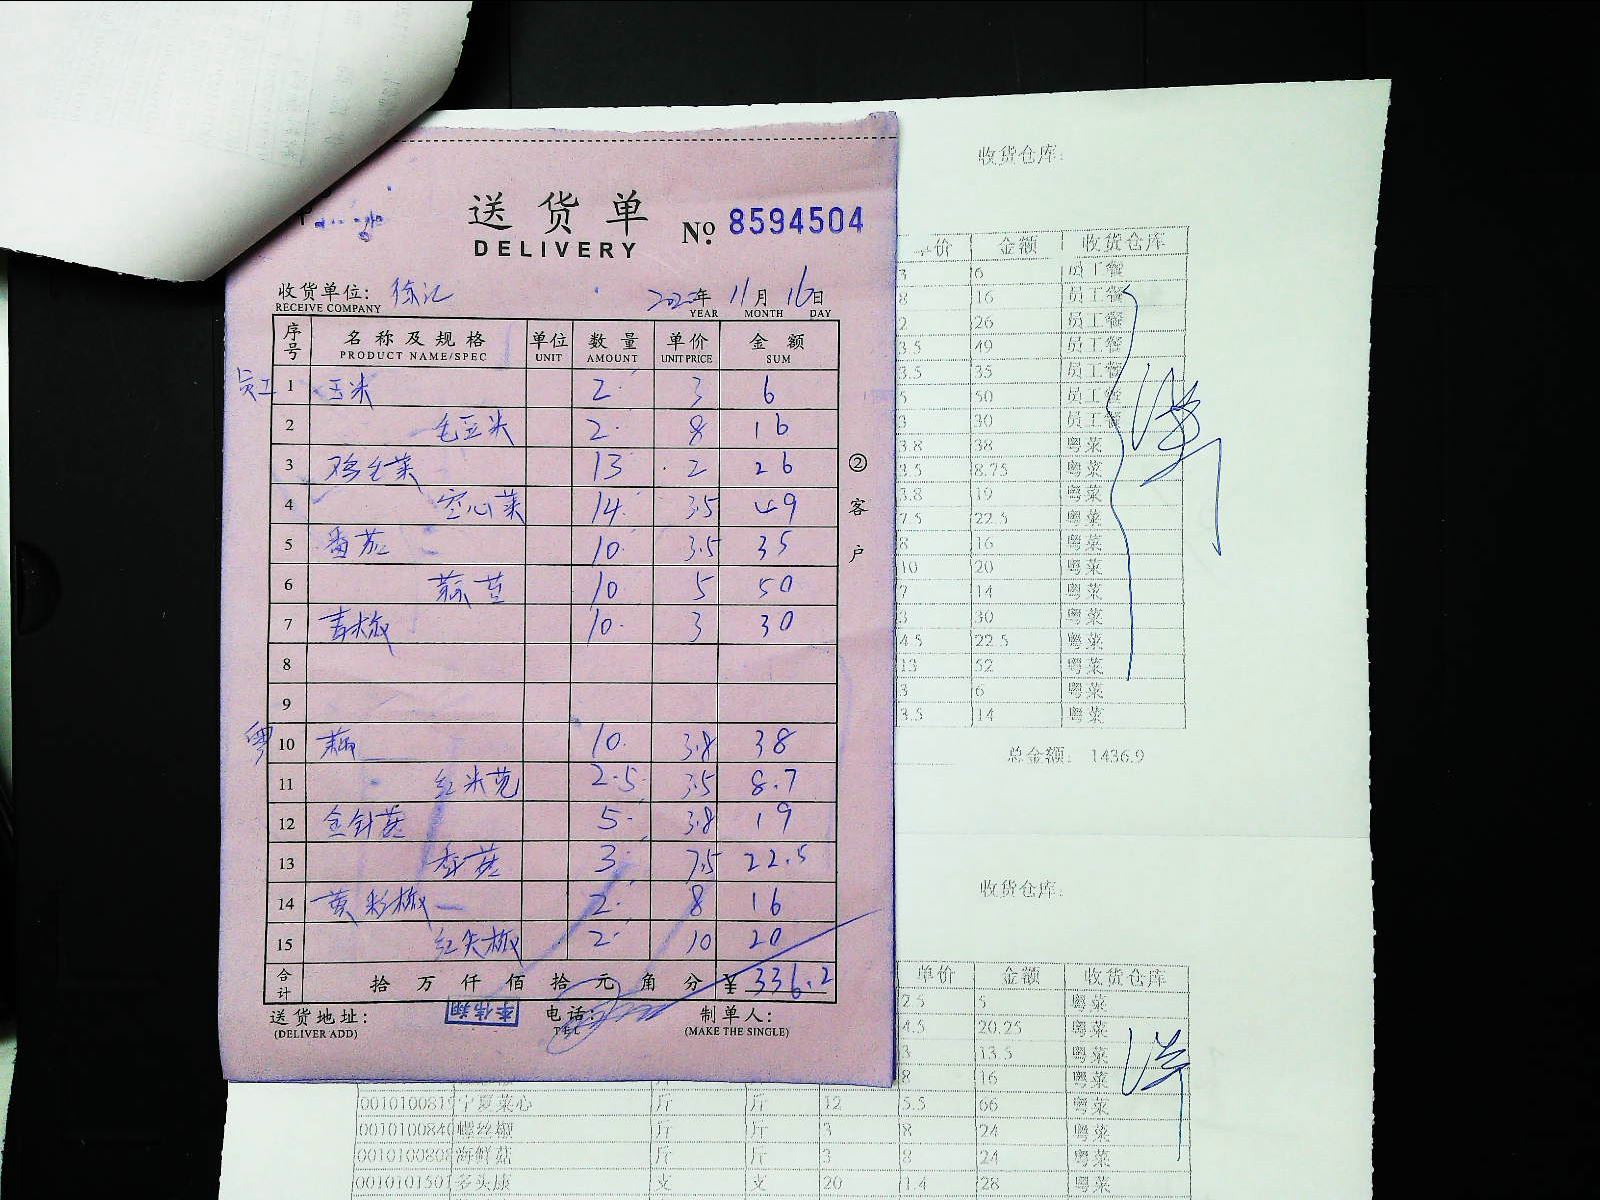 送货单
DELIVERY
No. 8594504
收货单位: 徐汇
RECEIVE COMPANY
2020年 11月 16日
YEAR MONTH DAY
序号 名称及规格 单位 数量 单价 金额
PRODUCT NAME/SPEC UNIT AMOUNT UNIT PRICE SUM
员工 1 玉米 2 3 6
2 毛豆米 2 8 16
3 鸡毛菜 13 2 26
4 空心菜 14 3.5 49
5 番茄 10 3.5 35
6 蒜苗 10 5 50
7 青椒 10 3 30
8
9
粤 10 藕 10 3.8 38
11 红米苋 2.5 3.5 8.7
12 金针菇 5 3.8 19
13 香菇 3 7.5 22.5
14 黄彩椒 2 8 16
15 红尖椒 2 10 20
合计 拾 万 仟 佰 拾 元 角 分 ¥ 336.2
送货地址:
(DELIVER ADD)
李伟翔
电话:
TEL
制单人:
(MAKE THE SINGLE)
②客户
收货仓库:
价 金额 收货仓库
3 6 员工餐
8 16 员工餐
2 26 员工餐
3.5 49 员工餐
3.5 35 员工餐
5 50 员工餐
3 30 员工餐
3.8 38 粤菜
3.5 8.75 粤菜
3.8 19 粤菜
7.5 22.5 粤菜
8 16 粤菜
10 20 粤菜
7 14 粤菜
3 30 粤菜
4.5 22.5 粤菜
13 52 粤菜
3 6 粤菜
3.5 14 粤菜
总金额: 1436.9
收货仓库:
单价 金额 收货仓库
2.5 5 粤菜
4.5 20.25 粤菜
3 13.5 粤菜
8 16 粤菜
宁夏菜心 斤 斤 12 5.5 66 粤菜
螺丝椒 斤 斤 3 8 24 粤菜
海鲜菇 斤 斤 3 8 24 粤菜
支 支 20 1.4 28 粤菜